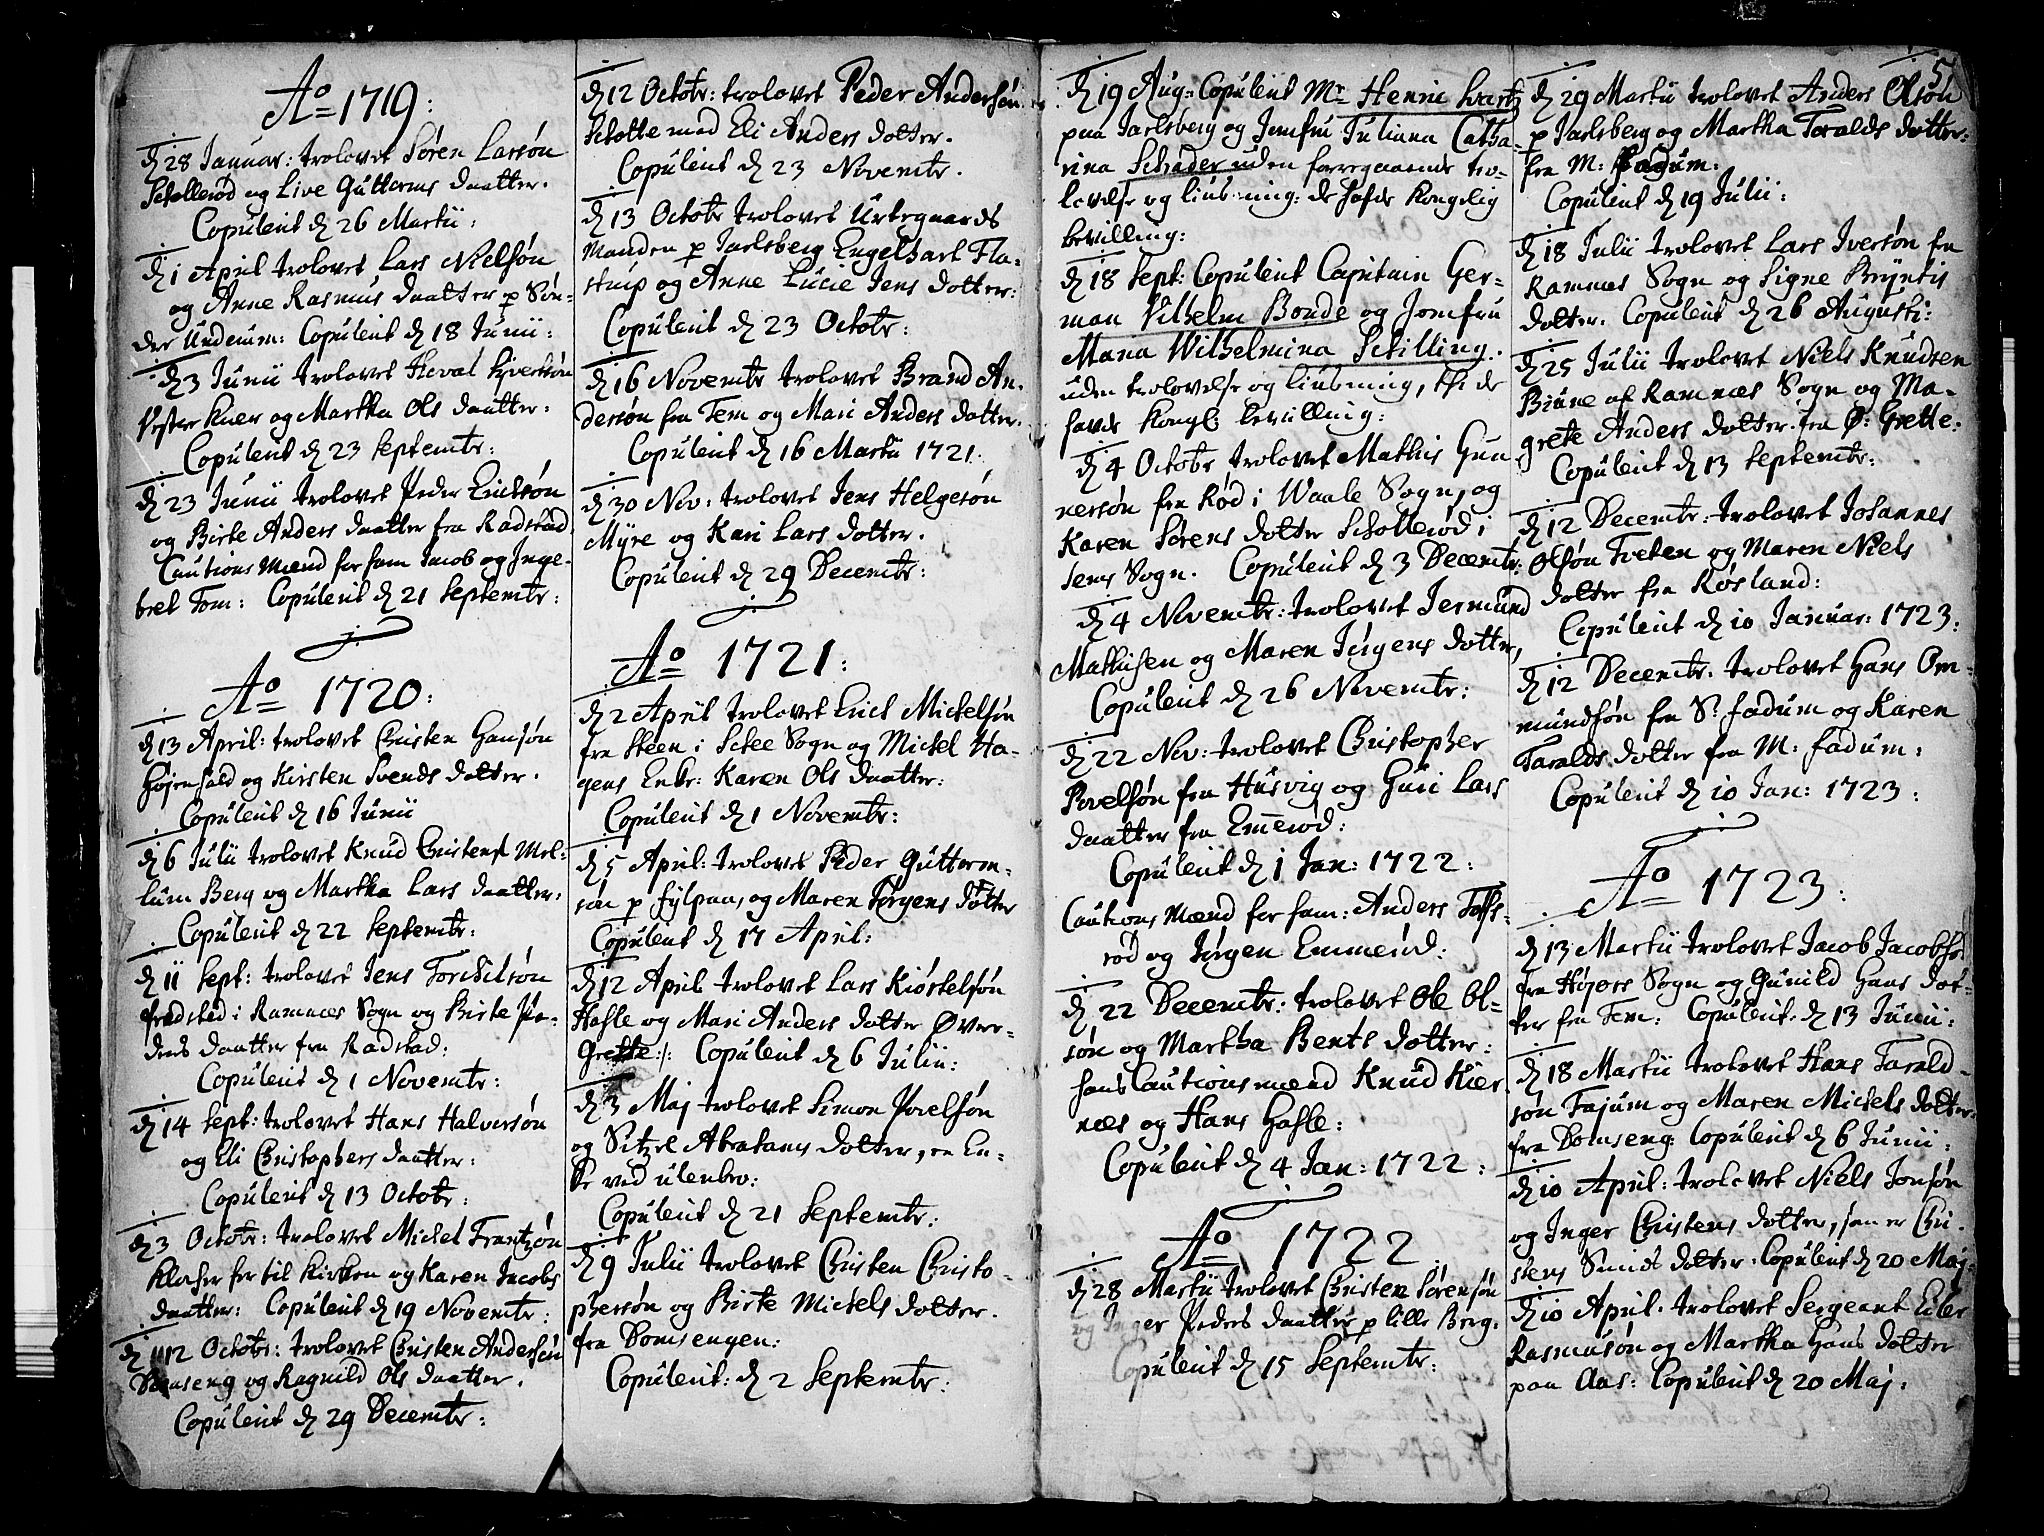 Ao 1719:
d 28 Januar: trolovet Sören Larsön
Skollerød og Live Guttorms daatter.
Copuleret d 26 Martii:
d 1 April trolovet Lars Nielsön
og Anne Rasmus daatter p Sön-
der Undrum: Copuleret d 18 Junii:
d 3 Junii trolovet
Vester og Martha Ols daatter:
Copuleret d 23 Septembr:
d 23 Junii trolovet Peder Ericksön
og Birte Anders daatter fra Radstad
Cautions Mænd for ham Jacob og Inge-
bret Tom: Copuleret d 21 Septembr:
Ao 1720:
d 13 April: trolovet Christen Hansön
og Kirsten Svends dotter.
Copuleret d 16 Junii
d 6 Julii trolovet Knud Mel-
lum Berg og Martha Lars daatter:
Copuleret d 22 Septembr:
d 11 Sept: trolovet Jens Torckilsön
fredstad i Ramnæs Sogn og Birte Pe-
ders daatter fra Radstad:
Copuleret d 1 Novembr:
d 14 Sept: trolovet Hans Halversön
og Eli Christophers daatter:
Copuleret d 13 Octobr:
d 3 Octobr: trolovet Mickel Frantzön
Klocker her til Kirken og Karen Jacobs
daatter: Copuleret d 19 Novembr:
d 12 Octobr: trolovet Christen Andersön
og Ragnild Ols daatter.
Copuleret d 29 Decembr:
d 12 Octobr: trolovet Peder Andersön
Skotte med Eli Anders dotter.
Copuleret d 23 Novembr.
d 13 Octobr trolovet Urtegaards
Manden p Jarlsberg Engelhart Fla-
strup og Anne Lucie Jens dotter:
Copuleret d 23 Octobr:
d 16 Novembr trolovet Brand An-
dersön fra Tem og Mari Anders dotter.
Copuleret d 16 Martii 1721.
d 30 Nov: trolovet Jens Helgesön
Myre og Kari Lars dotter.
Copuleret d 29 Decembr:
Ao 1721:
d 2 April trolovet Erick Mickelsön
fra Skeen i Skee Sogn og Mickel Ha-
gens Enke: Karen Ols daatter:
Copuleret d 1 Novembr:
d 5 April: trolovet Peder Guttorm-
sön p Fylpaa, og Maren Jörgens dotter
Copuleret d 17 April:
d 12 April trolovet Lars Kiöstelsön
Hasle og Mari Anders dotter Øver-
Grette: Copuleret d 6 Julii:
d 3 Maj trolovet Simon Povelsön
og Sitzel Abrahams dotter, en En-
ke ved ulenbro:
Copuleret d 21 Septembr:
d 9 Julii trolovet Christen Christo-
phersön og Birte Mickels dotter.
fra Domsengen:
Copuleret: d 2 Septembr:
d 19 Aug: Copuleret Mr Henric
paa Jarlsberg og Jomfru Juliana Catha-
rina Schrader uden forregaaende tro-
lovelse og liusning: de hafde Kongelig
bevilling:
d 18 Sept: Copuleret Capitain Ger-
man Vilhelm Bonde og Jomfru
Maria Wilhelmina Schilling.
uden trolovelse og liusning, thi de
havde Kongl: bevilling:
d 4 Octobr trolovet Mathis Gun
nersön fra Rød i Waale Sogn, og
Karen Sörens dotter Skollerød i
Sems Sogn. Copuleret d 3 Decembr:
d 4 Novembr: trolovet Jermund
Mathisen og Maren Jörgens dotter,
Copuleret d 26 Novembr:
d 22 Nov: trolovet Christopher
Povelsön fra Husvig og Guri Lars
daatter fra Em̄erød:
Copuleret d 1 Jan: 1722:
Cautions Mænd for ham: Anders Tofs-
rød og Jörgen Emmerød:
d 22 Decembr: trolovet Ole Ol-
sön og Martha Bents dotter:
hans Cautions mænd Knud Kier
næs og Hans Hasle:
Copuleret d 4 Jan: 1722:
Ao 1722
d 28 Martii trolovet Christen Sörensön
og Inger Peders daatter p lille Berg.
Copuleret d 15 Septembr:
5
d 29 Martii trolovet Anders Olsön
p Jarlsberg og Martha Taralds dotter.
fra M: Fadum.
Copuleret d 19 Julii:
d 18 Julii trolovet Lars Iversön fra
Ramnes Sogn og Signe Bryntis
dotter. Copuleret d 26 Augusti:
d 25 Julii trolovet Niels Knudsen
Brune af Ramnæs Sogn og Ma-
grete Anders dotter fra Ø: Grette:
Copuleret d 13 Septembr:
d 12 Decembr: trolovet Johannes
Olsön Tveten og Maren Niels
dotter fra Røsland:
Copuleret d 10 Januar: 1723:
d 12 Decembr. trolovet Hans Om-
mundsön fra S: Fadum og Karen
Taralds dotter fra M: Fadum:
Copuleret d 10 Jan: 1723:
Ao 1723:
d 13 Martii trolovet Jacob Jacobsön
fra Høyers Sogn og Gunild Hans dot-
ter fra Tem: Copuleret d 13 Junii:
d 18 Martii trolovet Hans Tarald-
sön Fajum og Maren Mickels dotter.
fra Domseng: Copuleret d 6 Junii:
d 10 April: trolovet Niels Jonsön
og Inger Christens dotter, som er Chri-
stens Smids dotter. Copuleret d 20 Maj:
d 10 April. trolovet Sergeant Eiler
Rasmusön og Martha Hans dotter
paa Aas: Copuleret d 20 Maj: